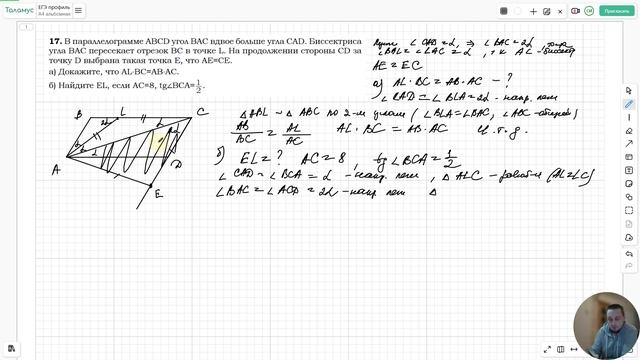 Таламус
ЕГЭ профиль
А4 альбомная
СИ
Пригласить
17. В параллелограмме ABCD угол BAC вдвое больше угла CAD. Биссектриса
угла BAC пересекает отрезок BC в точке L. На продолжении стороны CD за
точку D выбрана такая точка E, что AE=CE.
а) Докажите, что AL·BC=AB·AC.
б) Найдите EL, если AC=8, tg∠BCA=1/2.
∠CAD = α, ⇒ ∠BAC = 2α
∠BAL = ∠LAC = α, т.к. AL - биссект
AE = EC
а) AL · BC = AB · AC - ?
∠LAD = ∠BLA = 2α - накр. леж
△ABL ~ △ABC по 2-м углам (∠BLA = ∠BAC, ∠ABC - общий)
AB/BC = AL/AC AL · BC = AB · AC ч.т.д.
б) EL = ? AC = 8, tg∠BCA = 1/2
∠CAD = ∠BCA = α - накр. леж, △ALC - равноб (AL=LC)
∠BAC = ∠ACD = 2α - накр леж △
B
L
C
A
D
E